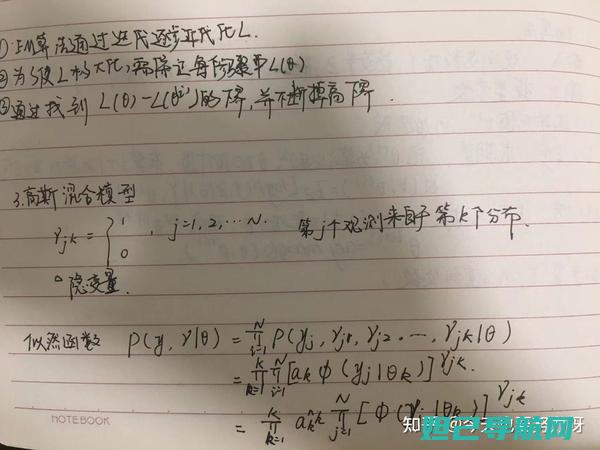 ① EM算法通过迭代逐步近似极大化L.
② 为了使L极大化,需保证每个步骤中L(θ)
③ 通过找到 L(θ)-L(θⁱ)的下界,并不断提高下界.
3.高斯混合模型
γjk = { 1 , j=1,2,…N. 第j个观测来自于第k个分布.
0
△ 隐变量.
似然函数 P(y,γ|θ) = ∏_{i=1}^{N} P(yj,γj1,γj2,…,γjk|θ)
= ∏_{k=1}^{K} ∏_{i=1}^{N} [ak φ(yj|θk)]^{γjk}.
= ∏_{k=1}^{K} ak^{nk} ∏_{j=1}^{N} [φ(yj|θk)]^{γjk}
NOTEBOOK